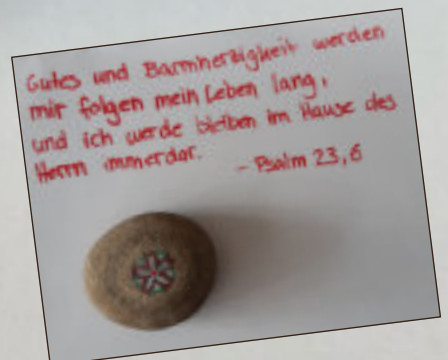 Gutes und Barmherzigkeit werden
mir folgen mein Leben lang,
und ich werde bleiben im Hause des
Herrn immerdar.
- Psalm 23,6